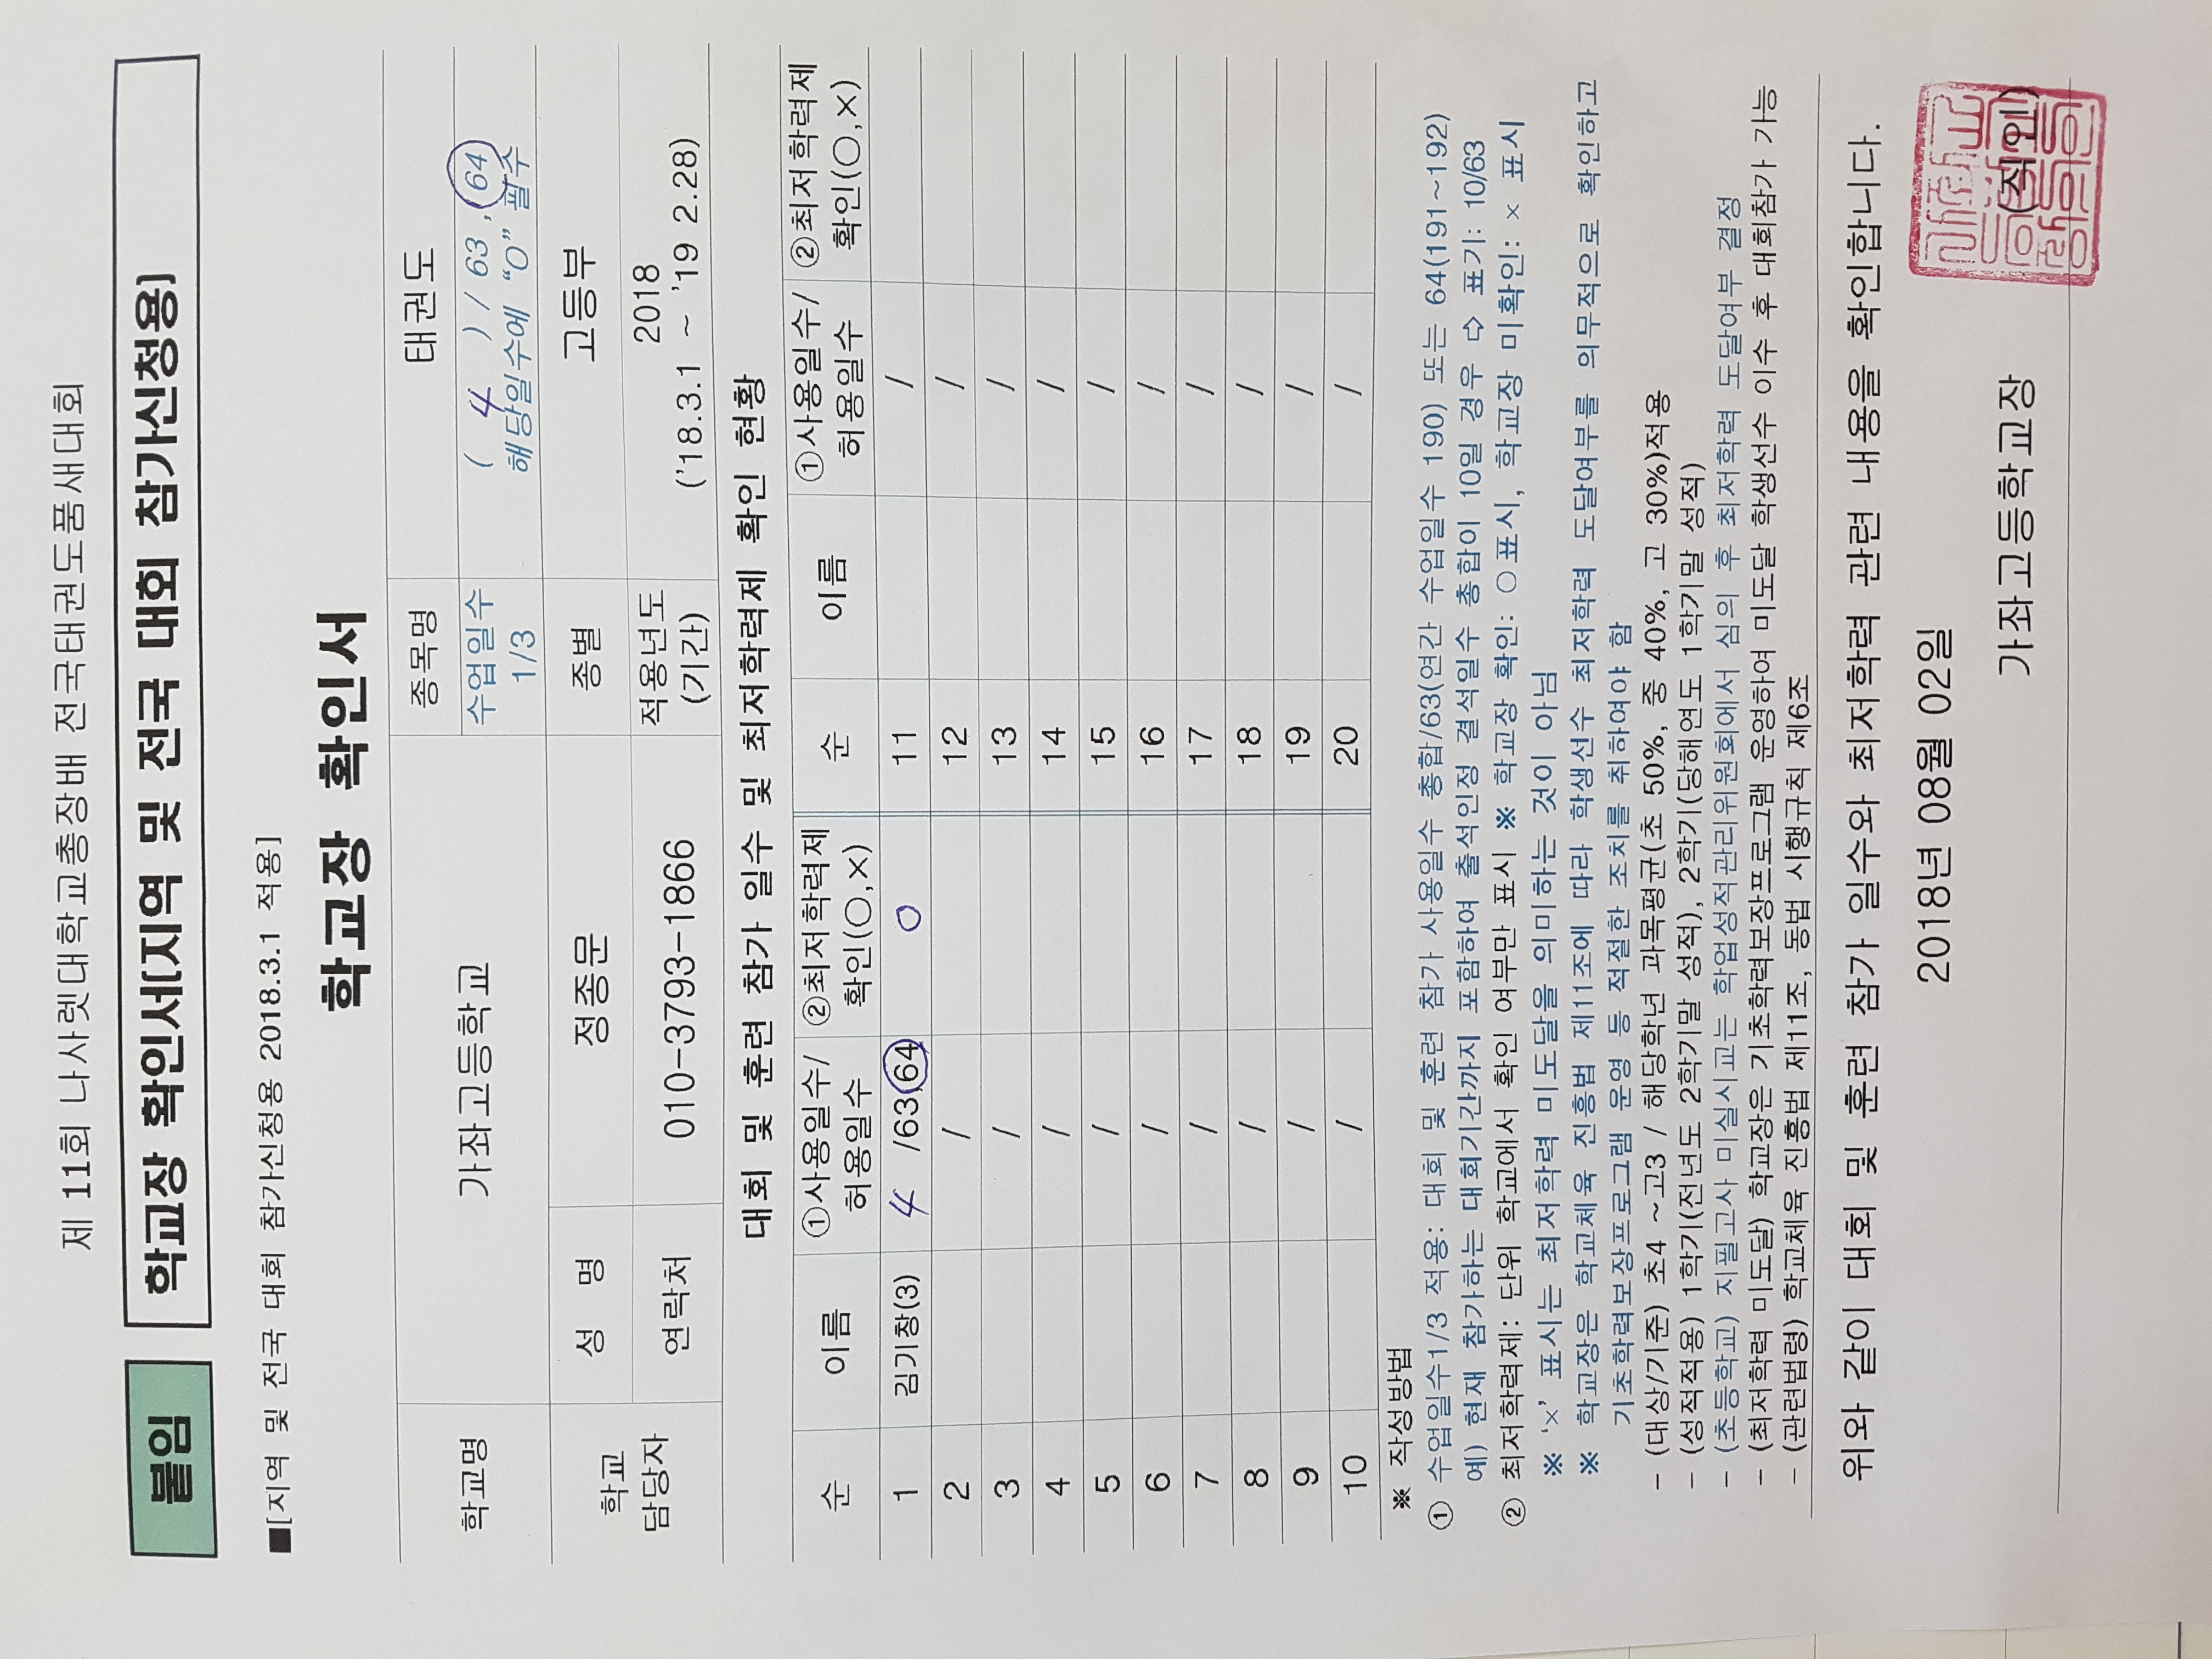 제 11회 나사렛대학교총장배 전국태권도품새대회
붙임 학교장 확인서[지역 및 전국 대회 참가신청용]
■[지역 및 전국 대회 참가신청용 2018.3.1 적용]
학교장 확인서
학교명 가좌고등학교 종목명 태권도
수업일수 1/3 ( 4 ) / 63 , 64
해당일수에 “O” 필수
학교 담당자 성 명 정종문 종별 고등부
연락처 010-3793-1866 적용년도 (기간) 2018
('18.3.1 ~ '19 2.28)
대회 및 훈련 참가 일수 및 최저학력제 확인 현황
순 이름 ①사용일수/허용일수 ②최저학력제 확인(○,×) 순 이름 ①사용일수/허용일수 ②최저학력제 확인(○,×)
1 김기창(3) 4 /63,64 O 11 /
2 / 12 /
3 / 13 /
4 / 14 /
5 / 15 /
6 / 16 /
7 / 17 /
8 / 18 /
9 / 19 /
10 / 20 /
※ 작성방법
① 수업일수1/3 적용: 대회 및 훈련 참가 사용일수 총합/63(연간 수업일수 190) 또는 64(191~192)
예) 현재 참가하는 대회기간까지 포함하여 출석인정 결석일수 총합이 10일 경우 ⇨ 표기: 10/63
② 최저학력제: 단위 학교에서 확인 여부만 표시 ※ 학교장 확인: ○표시, 학교장 미확인: × 표시
※ ‘×’ 표시는 최저학력 미도달을 의미하는 것이 아님
※ 학교장은 학교체육 진흥법 제11조에 따라 학생선수 최저학력 도달여부를 의무적으로 확인하고
기초학력보장프로그램 운영 등 적절한 조치를 취하여야 함
- (대상/기준) 초4 ~고3 / 해당학년 과목평균(초 50%, 중 40%, 고 30%)적용
- (성적적용) 1학기(전년도 2학기말 성적), 2학기(당해연도 1학기말 성적)
- (초등학교) 지필고사 미실시교는 학업성적관리위원회에서 심의 후 최저학력 도달여부 결정
- (최저학력 미도달) 학교장은 기초학력보장프로그램 운영하여 미도달 학생선수 이수 후 대회참가 가능
- (관련법령) 학교체육 진흥법 제11조, 동법 시행규칙 제6조
위와 같이 대회 및 훈련 참가 일수와 최저학력 관련 내용을 확인합니다.
2018년 08월 02일
가좌고등학교장 (직인)